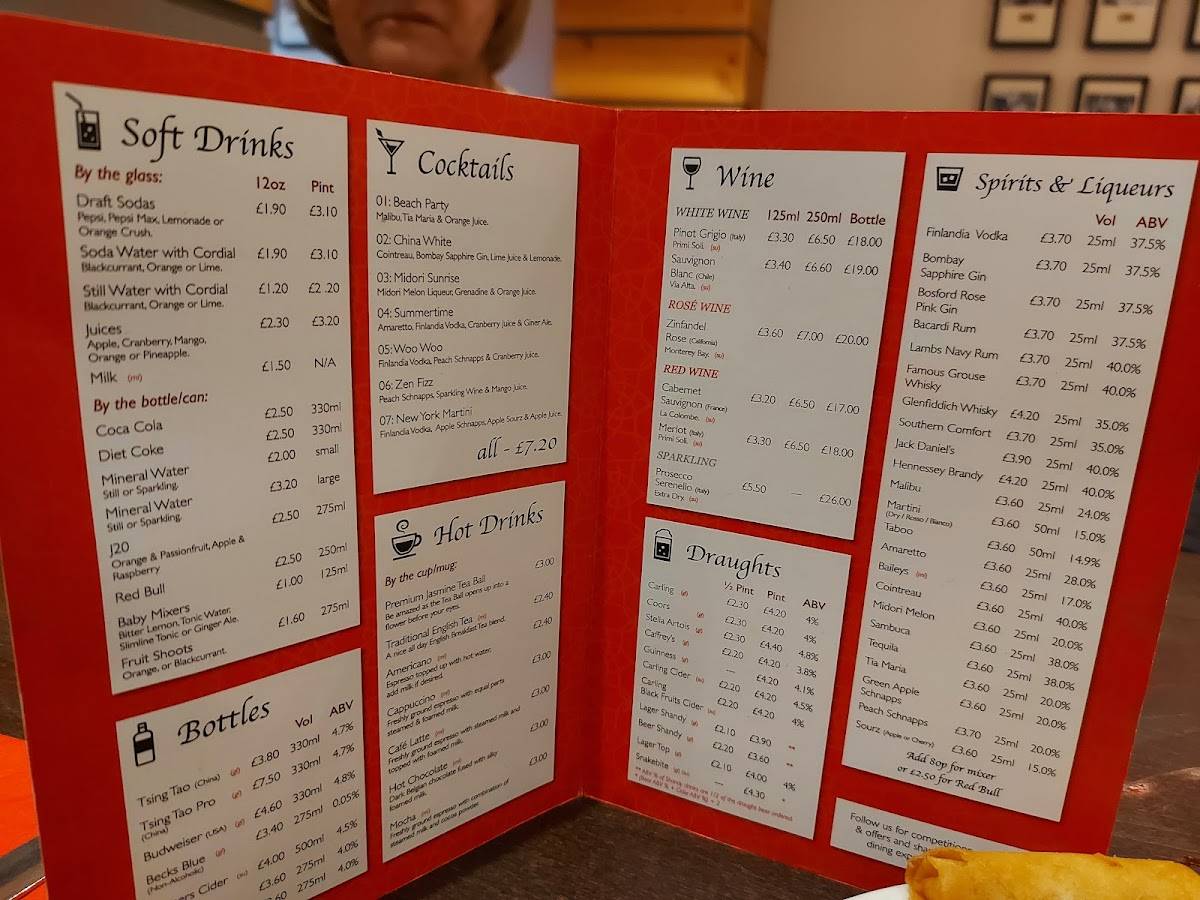 Soft Drinks
By the glass: 12oz Pint
Draft Sodas £1.90 £3.10
Pepsi, Pepsi Max, Lemonade or
Orange Crush.
Soda Water with Cordial £1.90 £3.10
Blackcurrant, Orange or Lime.
Still Water with Cordial £1.20 £2.20
Blackcurrant, Orange or Lime.
Juices £2.30 £3.20
Apple, Cranberry, Mango,
Orange or Pineapple.
Milk (ml) £1.50 N/A
By the bottle/can:
Coca Cola £2.50 330ml
Diet Coke £2.50 330ml
Mineral Water £2.00 small
Still or Sparkling.
Mineral Water £3.20 large
Still or Sparkling.
J20 £2.50 275ml
Orange & Passionfruit, Apple &
Raspberry
Red Bull £2.50 250ml
Baby Mixers £1.00 125ml
Bitter Lemon, Tonic Water,
Slimline Tonic or Ginger Ale.
Fruit Shoots £1.60 275ml
Orange, or Blackcurrant.
Bottles
Vol ABV
Tsing Tao (China) (gl) £3.80 330ml 4.7%
Tsing Tao Pro (gl) £7.50 330ml 4.7%
(China)
Budweiser (USA) (gl) £4.60 330ml 4.8%
Becks Blue (gl) £3.40 275ml 0.05%
(Non-Alcoholic)
ers Cider (su) £4.00 500ml 4.5%
£3.60 275ml 4.0%
£3.60 275ml 4.0%
Cocktails
01: Beach Party
Malibu, Tia Maria & Orange Juice.
02: China White
Cointreau, Bombay Sapphire Gin, Lime Juice & Lemonade.
03: Midori Sunrise
Midori Melon Liqueur, Grenadine & Orange Juice.
04: Summertime
Amaretto, Finlandia Vodka, Cranberry Juice & Giner Ale.
05: Woo Woo
Finlandia Vodka, Peach Schnapps & Cranberry Juice.
06: Zen Fizz
Peach Schnapps, Sparkling Wine & Mango Juice.
07: New York Martini
Finlandia Vodka, Apple Schnapps, Apple Sourz & Apple Juice.
all - £7.20
Hot Drinks
By the cup/mug:
Premium Jasmine Tea Ball £3.00
Be amazed as the Tea Ball opens up into a
flower before your eyes.
Traditional English Tea (ml) £2.40
A nice all day English Breakfast Tea blend.
Americano (ml) £2.40
Espresso topped up with hot water,
add milk if desired.
Cappuccino (ml) £3.00
Freshly ground espresso with equal parts
steamed & foamed milk.
Café Latte (ml) £3.00
Freshly ground espresso with steamed milk and
topped with foamed milk.
Hot Chocolate (ml) £3.00
Dark Belgian chocolate fused with silky
foamed milk.
Mocha (ml) £3.00
Freshly ground espresso with combination of
steamed milk and cocoa powder.
Wine
WHITE WINE 125ml 250ml Bottle
Pinot Grigio (Italy) £3.30 £6.50 £18.00
Primi Soli. (su)
Sauvignon £3.40 £6.60 £19.00
Blanc (Chile)
Via Alta. (su)
ROSÉ WINE
Zinfandel £3.60 £7.00 £20.00
Rose (California)
Monterey Bay. (su)
RED WINE
Cabernet £3.20 £6.50 £17.00
Sauvignon (France)
La Colombe. (su)
Merlot (Italy) £3.30 £6.50 £18.00
Primi Soli. (su)
SPARKLING
Prosecco £5.50 — £26.00
Serenello (Italy)
Extra Dry. (su)
Draughts
½ Pint Pint ABV
Carling (gl) £2.30 £4.20 4%
Coors (gl) £2.30 £4.20 4%
Stella Artois (gl) £2.30 £4.40 4.8%
Caffrey's (gl) £2.20 £4.20 3.8%
Guinness (gl) — £4.20 4.1%
Carling Cider (su) £2.20 £4.20 4.5%
Carling £2.20 £4.20 4%
Black Fruits Cider (su)
Lager Shandy (gl) £2.10 £3.90 **
Beer Shandy (gl) £2.20 £3.60 **
Lager Top (gl) £2.10 £4.00 4%
Snakebite (gl) (su) — £4.30 *
** ABV % of Shandy drinks are 1/2 of the draught beer ordered
* (Beer ABV % + Cider ABV %) ÷ 2
Spirits & Liqueurs
Vol ABV
Finlandia Vodka £3.70 25ml 37.5%
Bombay £3.70 25ml 37.5%
Sapphire Gin
Bosford Rose £3.70 25ml 37.5%
Pink Gin
Bacardi Rum £3.70 25ml 37.5%
Lambs Navy Rum £3.70 25ml 40.0%
Famous Grouse £3.70 25ml 40.0%
Whisky
Glenfiddich Whisky £4.20 25ml 35.0%
Southern Comfort £3.70 25ml 35.0%
Jack Daniel's £3.90 25ml 40.0%
Hennessey Brandy £4.20 25ml 40.0%
Malibu £3.60 25ml 24.0%
Martini £3.60 50ml 15.0%
(Dry / Rosso / Bianco)
Taboo £3.60 50ml 14.9%
Amaretto £3.60 25ml 28.0%
Baileys (ml) £3.60 25ml 17.0%
Cointreau £3.60 25ml 40.0%
Midori Melon £3.60 25ml 20.0%
Sambuca £3.60 25ml 38.0%
Tequila £3.60 25ml 38.0%
Tia Maria £3.60 25ml 20.0%
Green Apple £3.60 25ml 20.0%
Schnapps
Peach Schnapps £3.70 25ml 20.0%
Sourz (Apple or Cherry) £3.60 25ml 15.0%
Add 80p for mixer
or £2.50 for Red Bull
Follow us for competitions
& offers and sha
dining exp